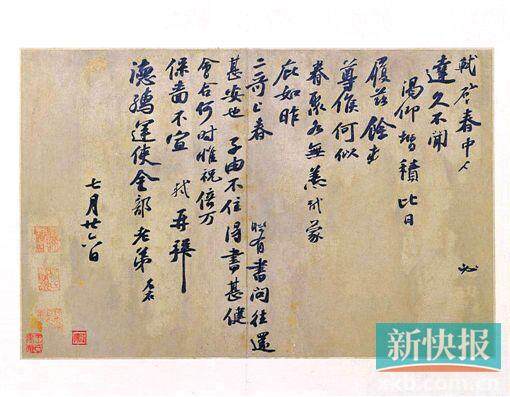 軾啓春中人
必
達久不聞
渴仰增積比日
履茲餘
尊候何似
眷聚各無恙軾蒙
庇如昨
二哥上春 有書問往還
甚安也子由不住得書甚健
會合何時惟祝倍万
保嗇不宣 軾再拜
德孺運使金部老弟
七月廿日
新快报
xkb.com.cn